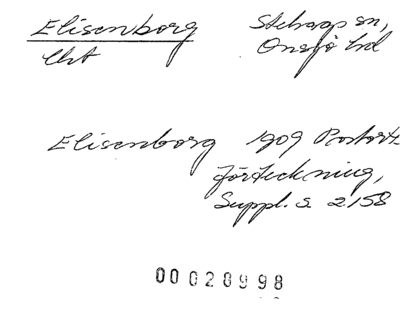 Elisenborg Stehag sn,
Uht Onsjö hd
Elisenborg 1909 Postort-
förteckning,
Suppl. s 2158
00020998